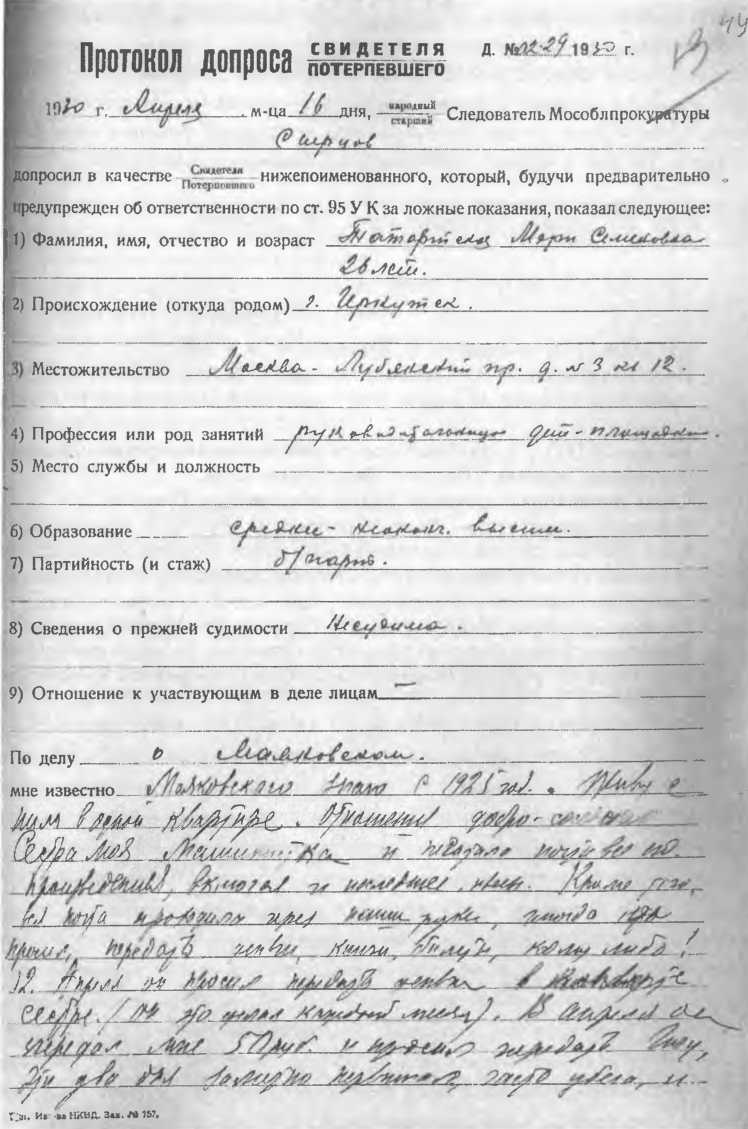 44
Протокол допроса СВИДЕТЕЛЯ ПОТЕРПЕВШЕГО Д. № 02-29 1930 г.
1930 г. Апреля м-ца 16 дня, народный старший Следователь Мособлпрокуратуры
Сырцов
допросил в качестве Свидетеля Потерпевшего нижепоименованного, который, будучи предварительно
предупрежден об ответственности по ст. 95 УК за ложные показания, показал следующее:
1) Фамилия, имя, отчество и возраст Татарийская Мари Семеновна
26 лет.
2) Происхождение (откуда родом) г. Иркутск.
3) Местожительство Москва - Лубянский пр. д. № 3 кв 12.
4) Профессия или род занятий руководительница дет-площадки.
5) Место службы и должность
6) Образование средне-неоконч. высш.
7) Партийность (и стаж) б/парт.
8) Сведения о прежней судимости Несудима.
9) Отношение к участвующим в деле лицам —
По делу о Маяковском.
мне известно Маяковского знаю с 1925 год. Живу с
ним в одной квартире. Отношения добро-
Сестра моя Машинистка и печатала почти все его
произведения, включая и последнее, Кроме того,
вся почта проходила через наши руки, иногда
просил передать деньги, книги, билеты, кому либо!
12. Апреля он просил передать деньги в
сестре. (он это делал каждый месяц). В апреле он
передал мне 50 руб. и просил передать
Эти два дня заметно нервничал, часто убегал, и
Тип. Из-ва НКВД. Зак. № 157.